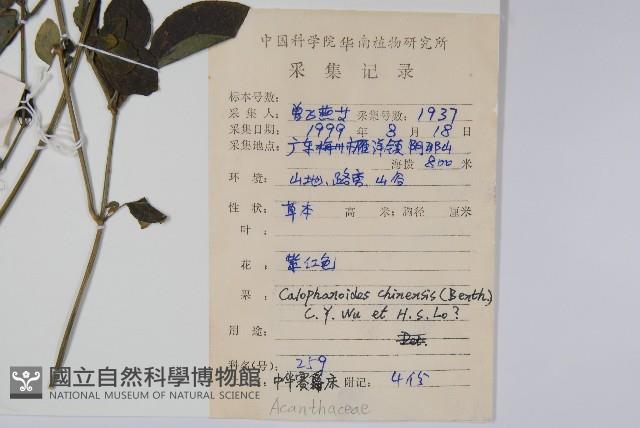 中国科学院华南植物研究所
采集记录
标本号数:
采集人: 曾飞燕 采集号数: 1937
采集日期: 1999 年 8 月 18 日
采集地点: 广东梅州市雁洋镇阴那山
海拨 800 米
环境: 山地、路旁、山谷
性状: 草本 高 米; 胸径 厘米
叶:
花: 紫红色
果: Calophanoides chinensis (Benth.)
C. Y. Wu et H. S. Lo?
用途:
Det.
科名(号): 259
中华赛爵床 附记: 4份
Acanthaceae
國立自然科學博物館
NATIONAL MUSEUM OF NATURAL SCIENCE